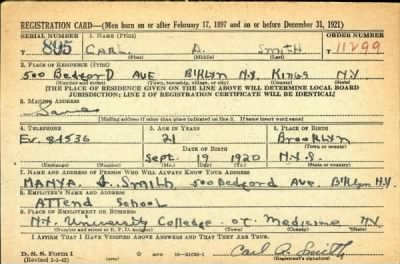 REGISTRATION CARD—(Men born on or after February 17, 1897 and on or before December 31, 1921)
SERIAL NUMBER 1. NAME (Print) ORDER NUMBER
805 CARL A. SMITH 11299
(First) (Middle) (Last)
2. PLACE OF RESIDENCE (Print)
500 Bedford AVE B'KLYN N.Y. KINGS N.Y.
(Number and street) (Town, township, village, or city) (County) (State)
[THE PLACE OF RESIDENCE GIVEN ON THE LINE ABOVE WILL DETERMINE LOCAL BOARD
JURISDICTION; LINE 2 OF REGISTRATION CERTIFICATE WILL BE IDENTICAL]
3. MAILING ADDRESS
Same
[Mailing address if other than place indicated on line 2. If same insert word same]
4. TELEPHONE 5. AGE IN YEARS 6. PLACE OF BIRTH
Ev. 84536 21 BrooKLyn
DATE OF BIRTH (Town or county)
Sept. 19 1920 N.Y.
(Exchange) (Number) (Mo.) (Day) (Yr.) (State or country)
7. NAME AND ADDRESS OF PERSON WHO WILL ALWAYS KNOW YOUR ADDRESS
MANYA Smith 500 Bedford Ave. B'Klyn N.Y.
8. EMPLOYER'S NAME AND ADDRESS
ATTend School
9. PLACE OF EMPLOYMENT OR BUSINESS
N.Y. University College of Medicine NY
(Number and street or R. F. D. number) (Town) (County) (State)
I AFFIRM THAT I HAVE VERIFIED ABOVE ANSWERS AND THAT THEY ARE TRUE.
D. S. S. Form 1
(Revised 1-1-42) (over) 16—21630-1 Carl A. Smith
(Registrant's signature)